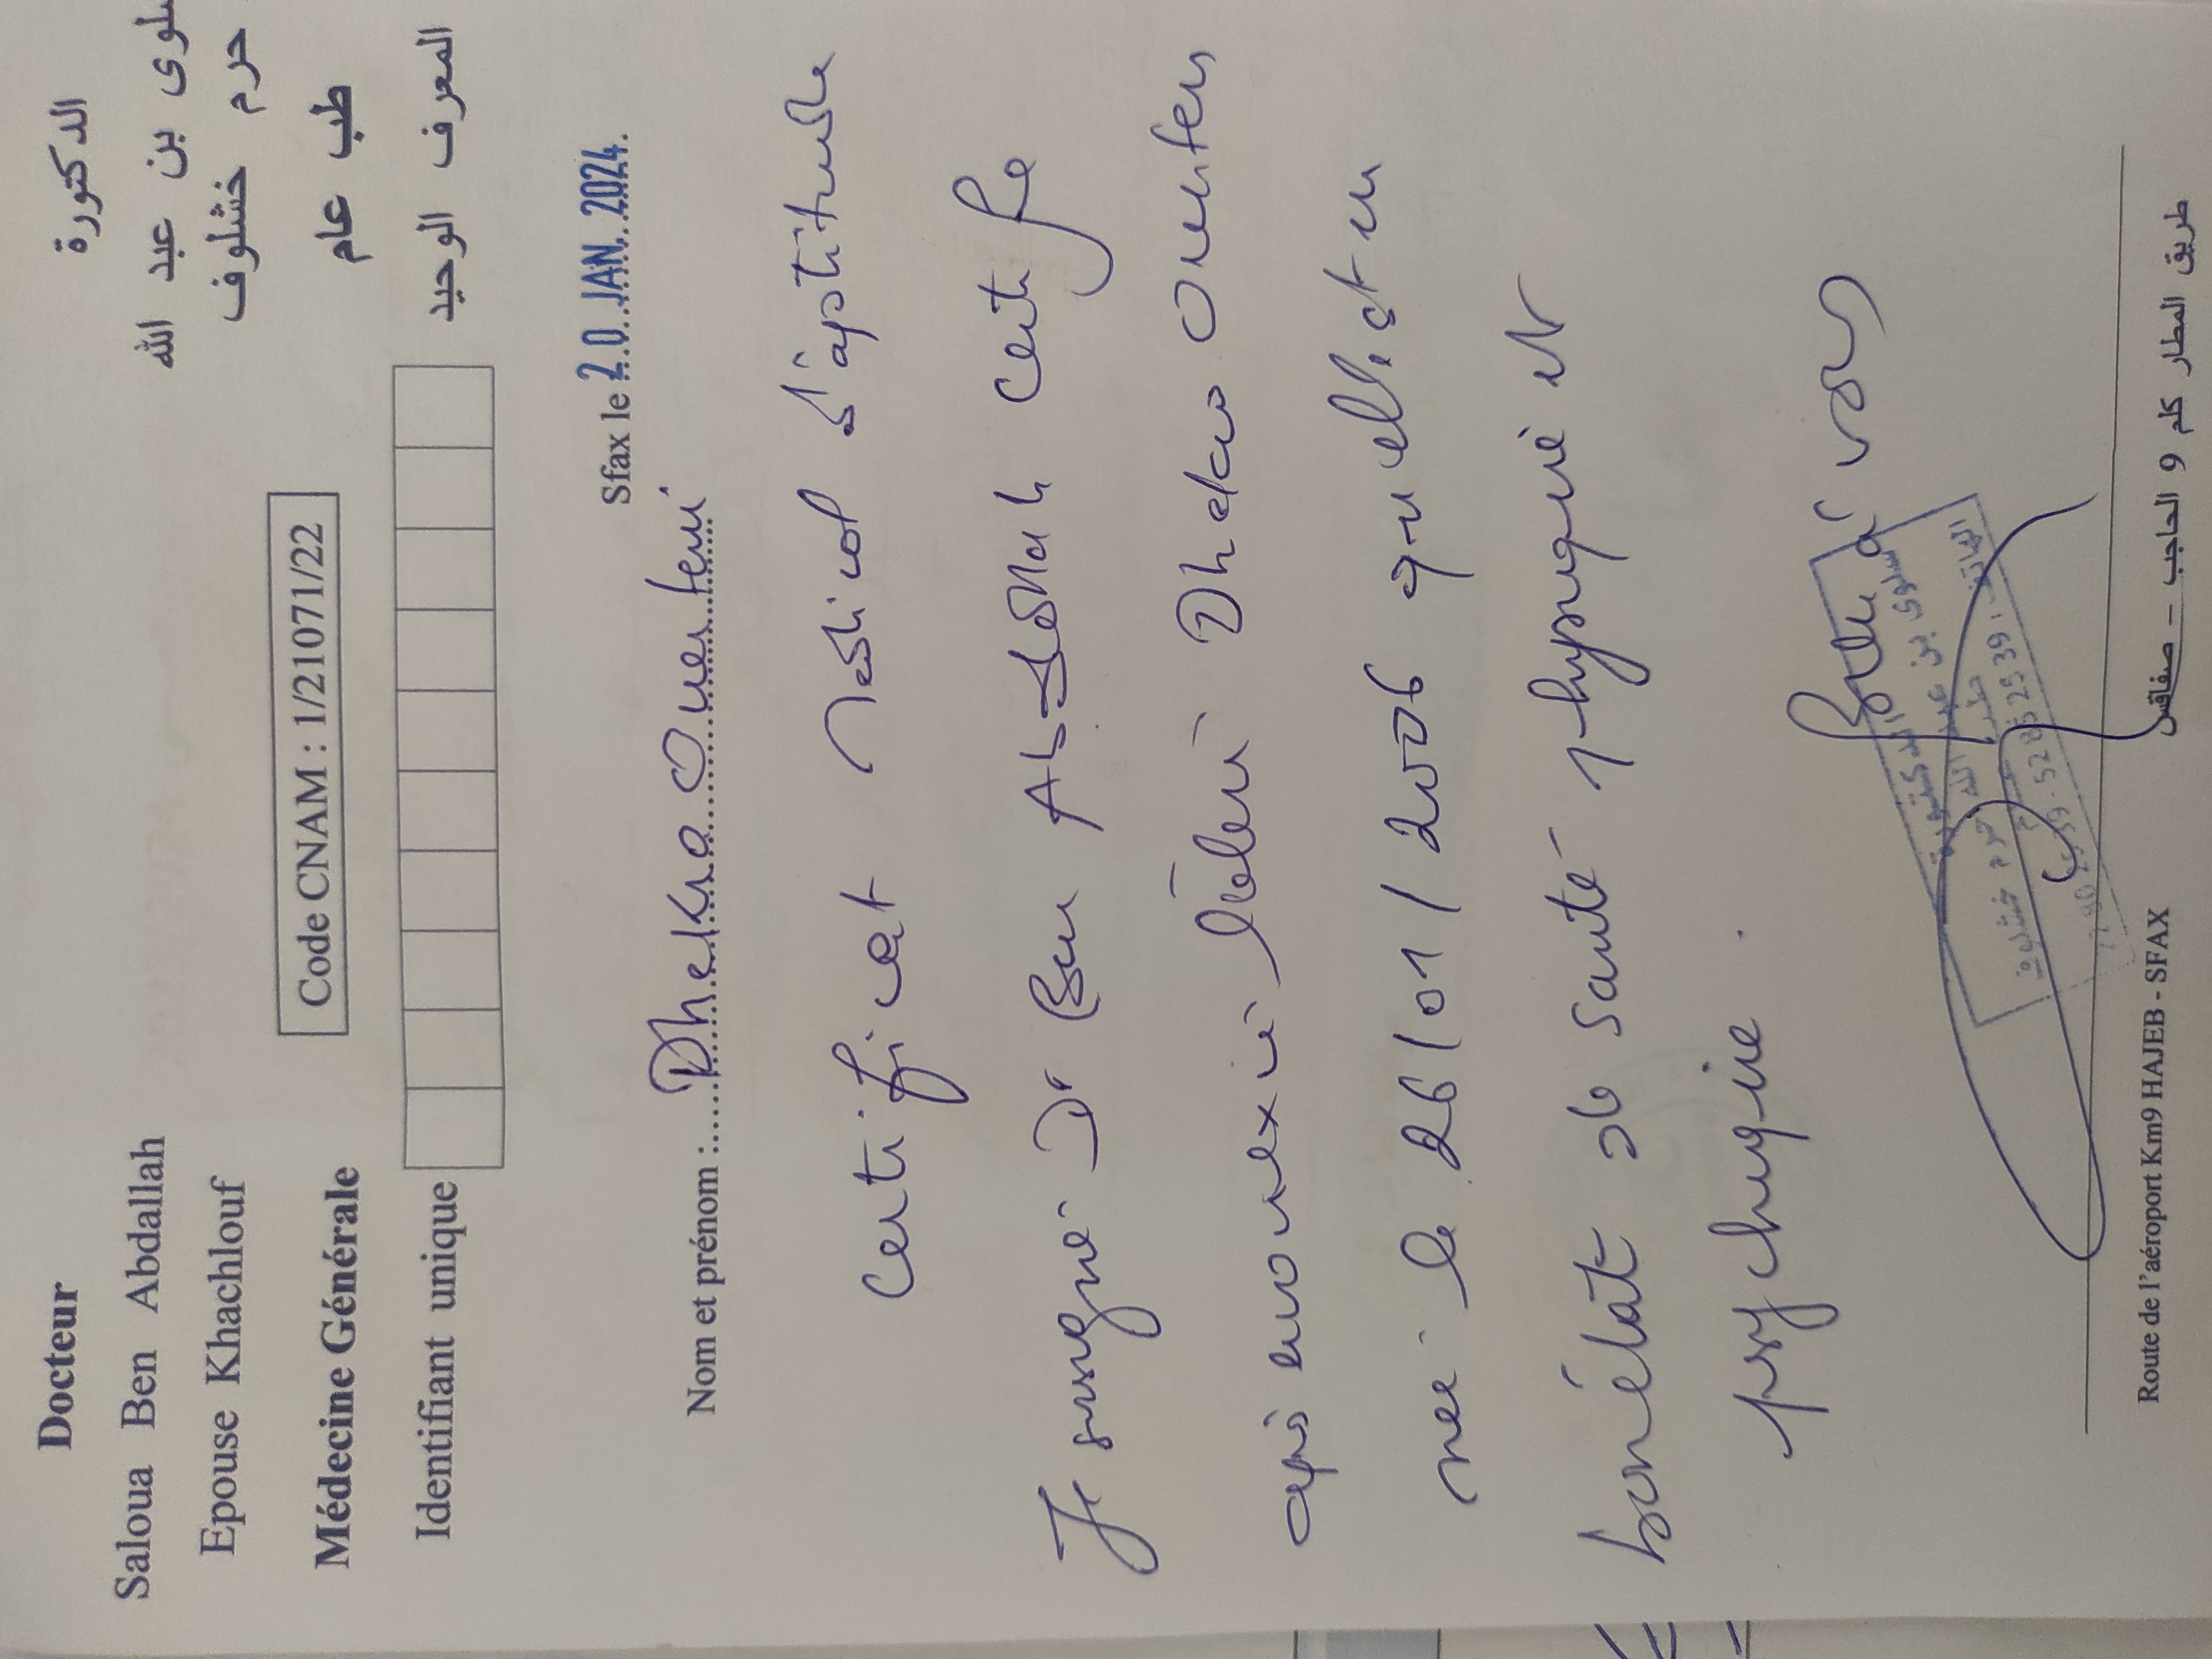 Docteur
Saloua Ben Abdallah
Epouse Khachlouf
Médecine Générale
الدكتورة
سلوى بن عبد الله
حرم خشلوف
طب عام
Code CNAM : 1/21071/22
Identifiant unique
المعرف الوحيد
Sfax le 20 JAN. 2024
Nom et prénom : Dhekra Ouerteni
Certificat Médical d'aptitude
Je soussigné Dr Ben Abdallah Certifie
après avoir examiné Dhekra
née le 26/01/2006 qu'elle est en
bon état de santé physique et
psychique
الدكتورة
سلوى بن عبد الله حرم خشلوف
الهاتف
Route de l'aéroport Km9 HAJEB - SFAX
طريق المطار كلم 9 الحاجب – صفاقس